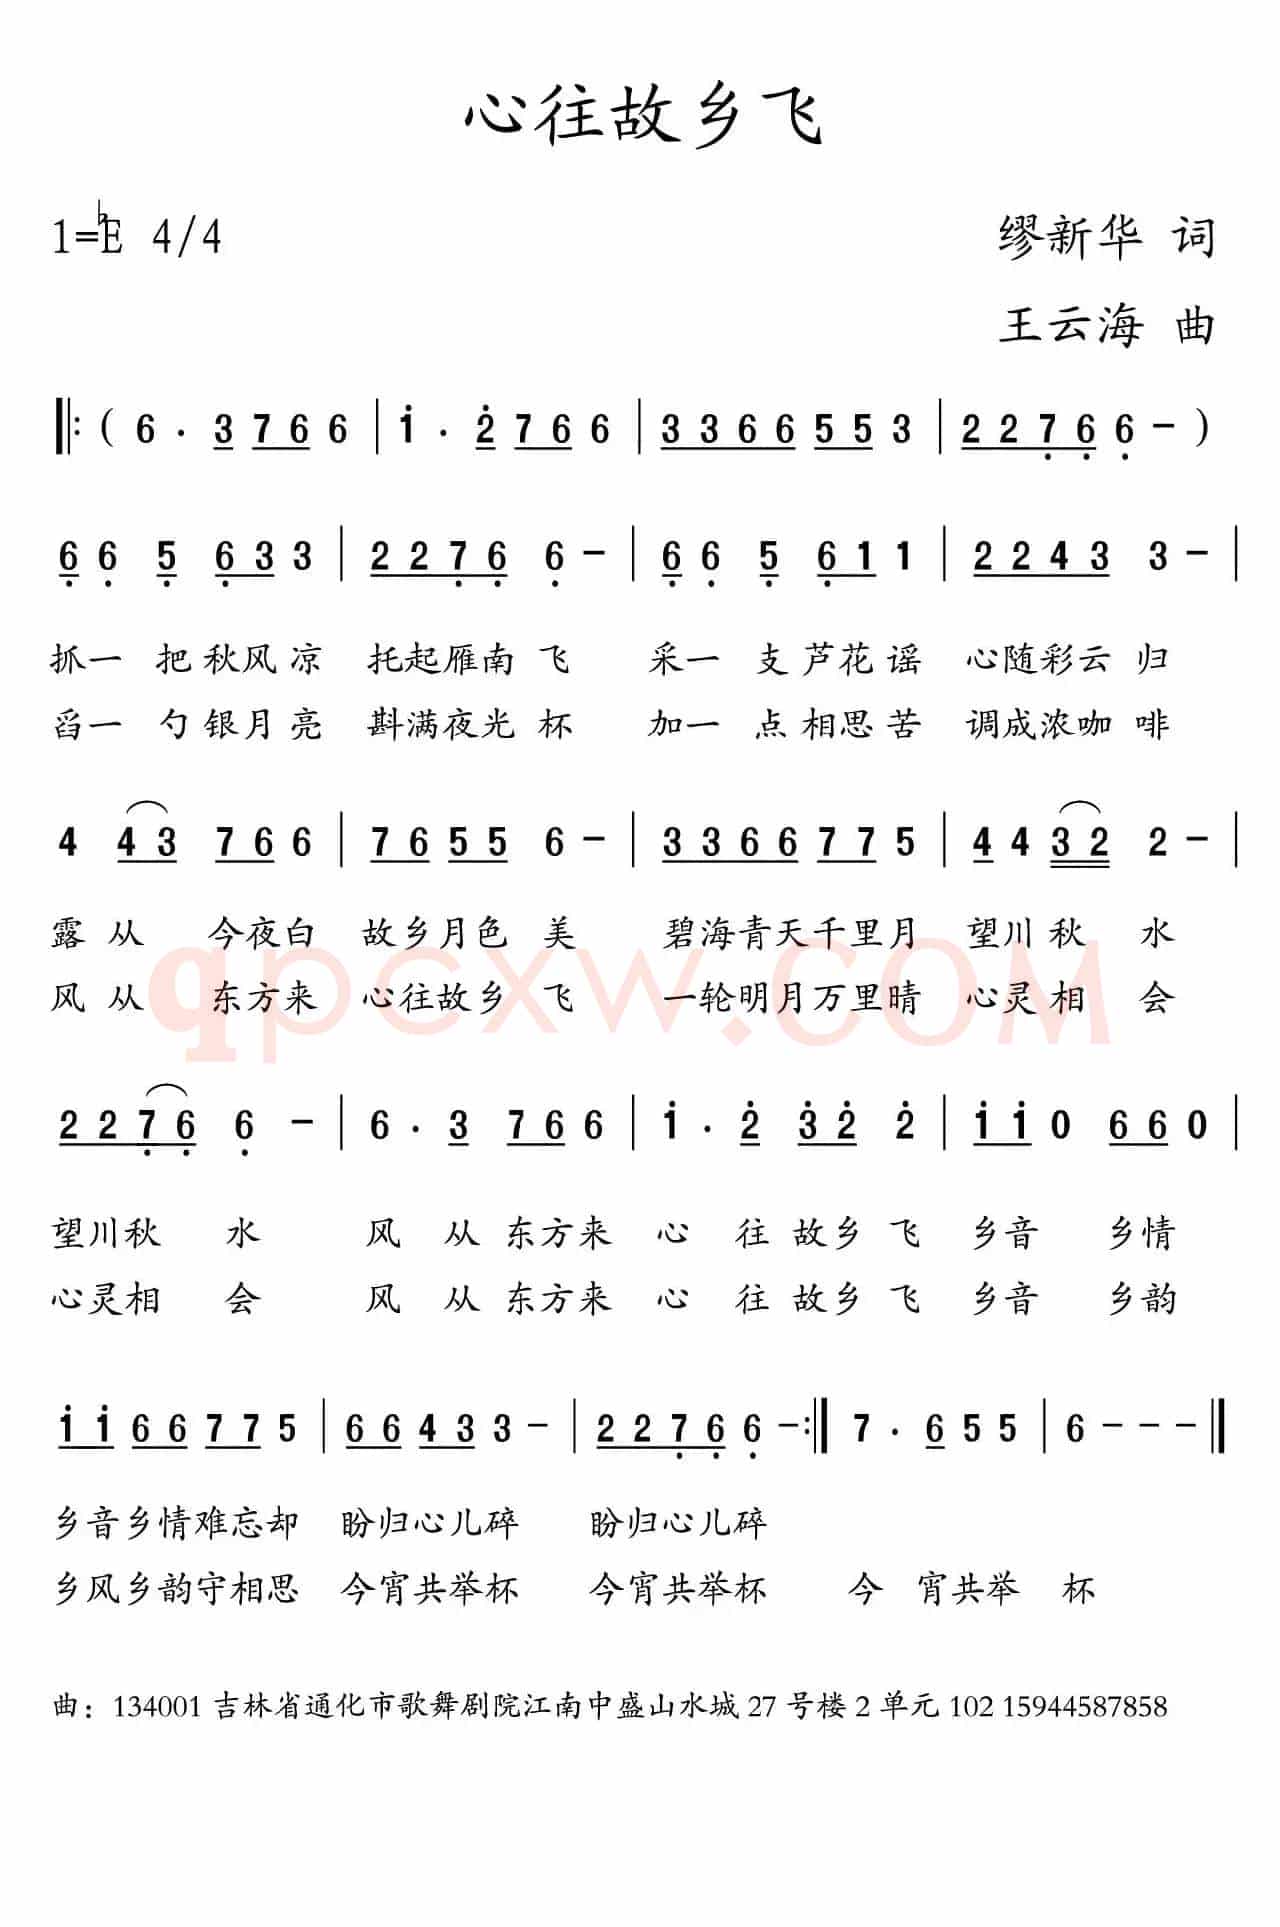 心往故乡飞
1=♭E 4/4 缪新华 词
王云海 曲
‖: ( 6 . 3 7 6 6 | 1 . 2 7 6 6 | 3 3 6 6 5 5 3 | 2 2 7 6 6 – )
6 6 5 6 3 3 | 2 2 7 6 6 – | 6 6 5 6 1 1 | 2 2 4 3 3 – |
抓一 把 秋风 凉 托起雁南 飞 采一 支 芦花 谣 心随彩云 归
舀一 勺 银月 亮 斟满夜光 杯 加一 点 相思 苦 调成浓咖 啡
4 4 3 7 6 6 | 7 6 5 5 6 – | 3 3 6 6 7 7 5 | 4 4 3 2 2 – |
露 从 今夜白 故乡月色 美 碧海青天千里月 望川 秋 水
风 从 东方来 心往故乡 飞 一轮明月万里晴 心灵 相 会
qpcxw.COM
2 2 7 6 6 – | 6 . 3 7 6 6 | 1 . 2 3 2 2 | 1 1 0 6 6 0 |
望川秋 水 风 从 东方来 心 往 故乡 飞 乡音 乡情
心灵相 会 风 从 东方来 心 往 故乡 飞 乡音 乡韵
1 1 6 6 7 7 5 | 6 6 4 3 3 – | 2 2 7 6 6 – :‖ 7 . 6 5 5 | 6 – – – ‖
乡音乡情难忘却 盼归心儿碎 盼归心儿碎
乡风乡韵守相思 今宵共举杯 今宵共举杯 今 宵共举 杯
曲：134001 吉林省通化市歌舞剧院江南中盛山水城 27 号楼 2 单元 102 15944587858